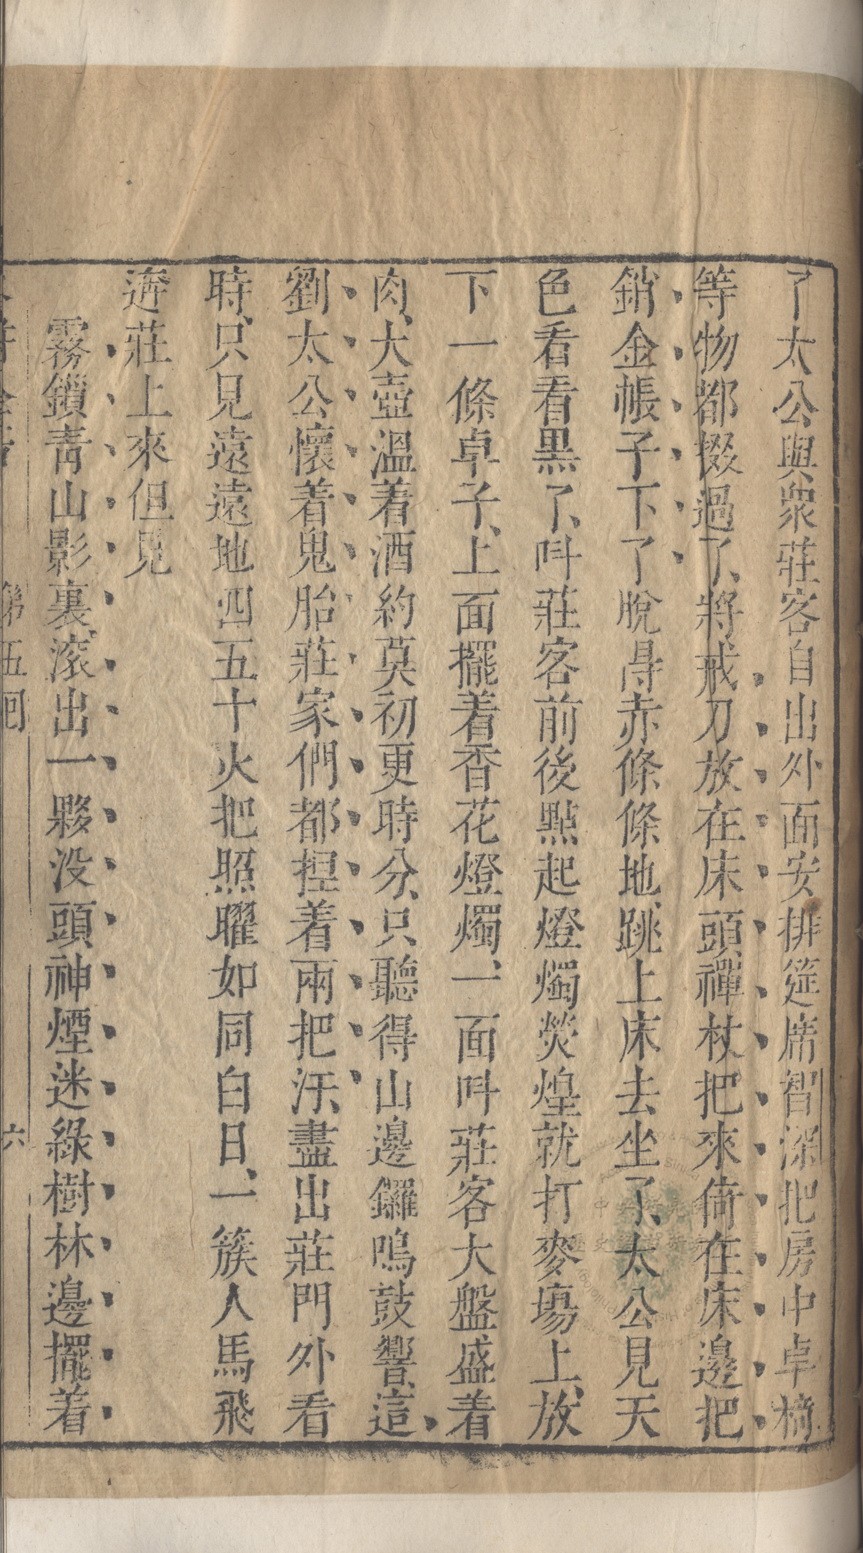 了太公與衆莊客自出外面安排筵席智深把房中卓椅
等物都掇過了、將戒刀放在床頭、禪杖把來倚在床邊把
銷金帳子下了脫得赤條條地、跳上床去坐了、太公見天
色看看黑了、叫莊客前後點起燈燭熒煌就打麥場上、放
下一條卓子、上面擺着香花燈燭、一面叫莊客大盤盛着
肉、大壺溫着酒約莫初更時分、只聽得山邊鑼鳴鼓響、這
劉太公懷着鬼胎莊家們都捏着兩把汗、盡出莊門外看
時、只見遠遠地四五十火把照曜如同白日、一簇人馬飛
奔莊上來但見
霧鎖青山影裏、滚出一夥没頭神煙迷綠樹林邊擺着
第五囘
六